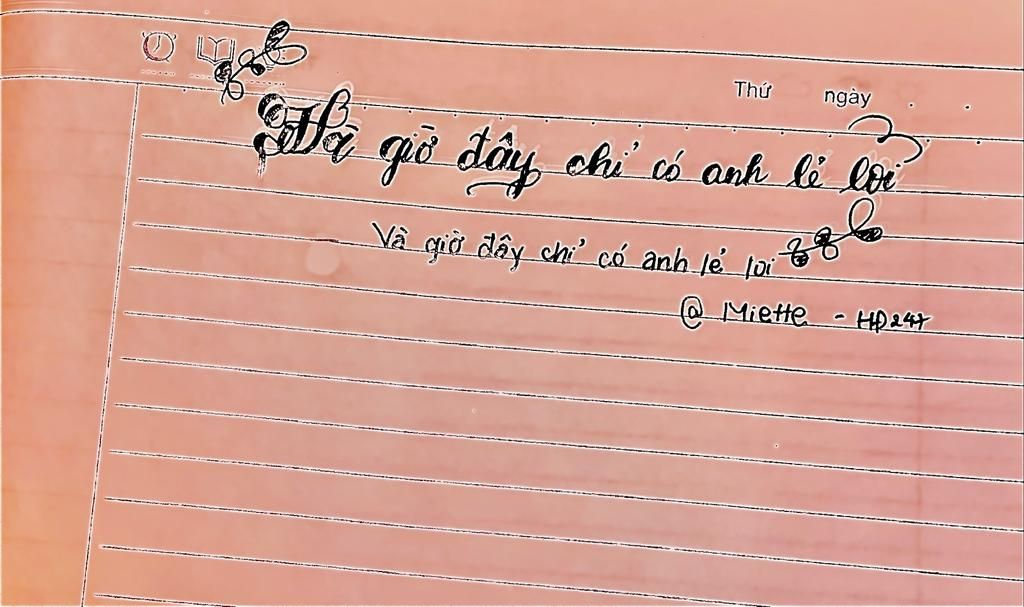 Thứ ngày
Và giờ đây chỉ có anh lẻ loi
Và giờ đây chỉ có anh lẻ loi
@ Miette - HD247